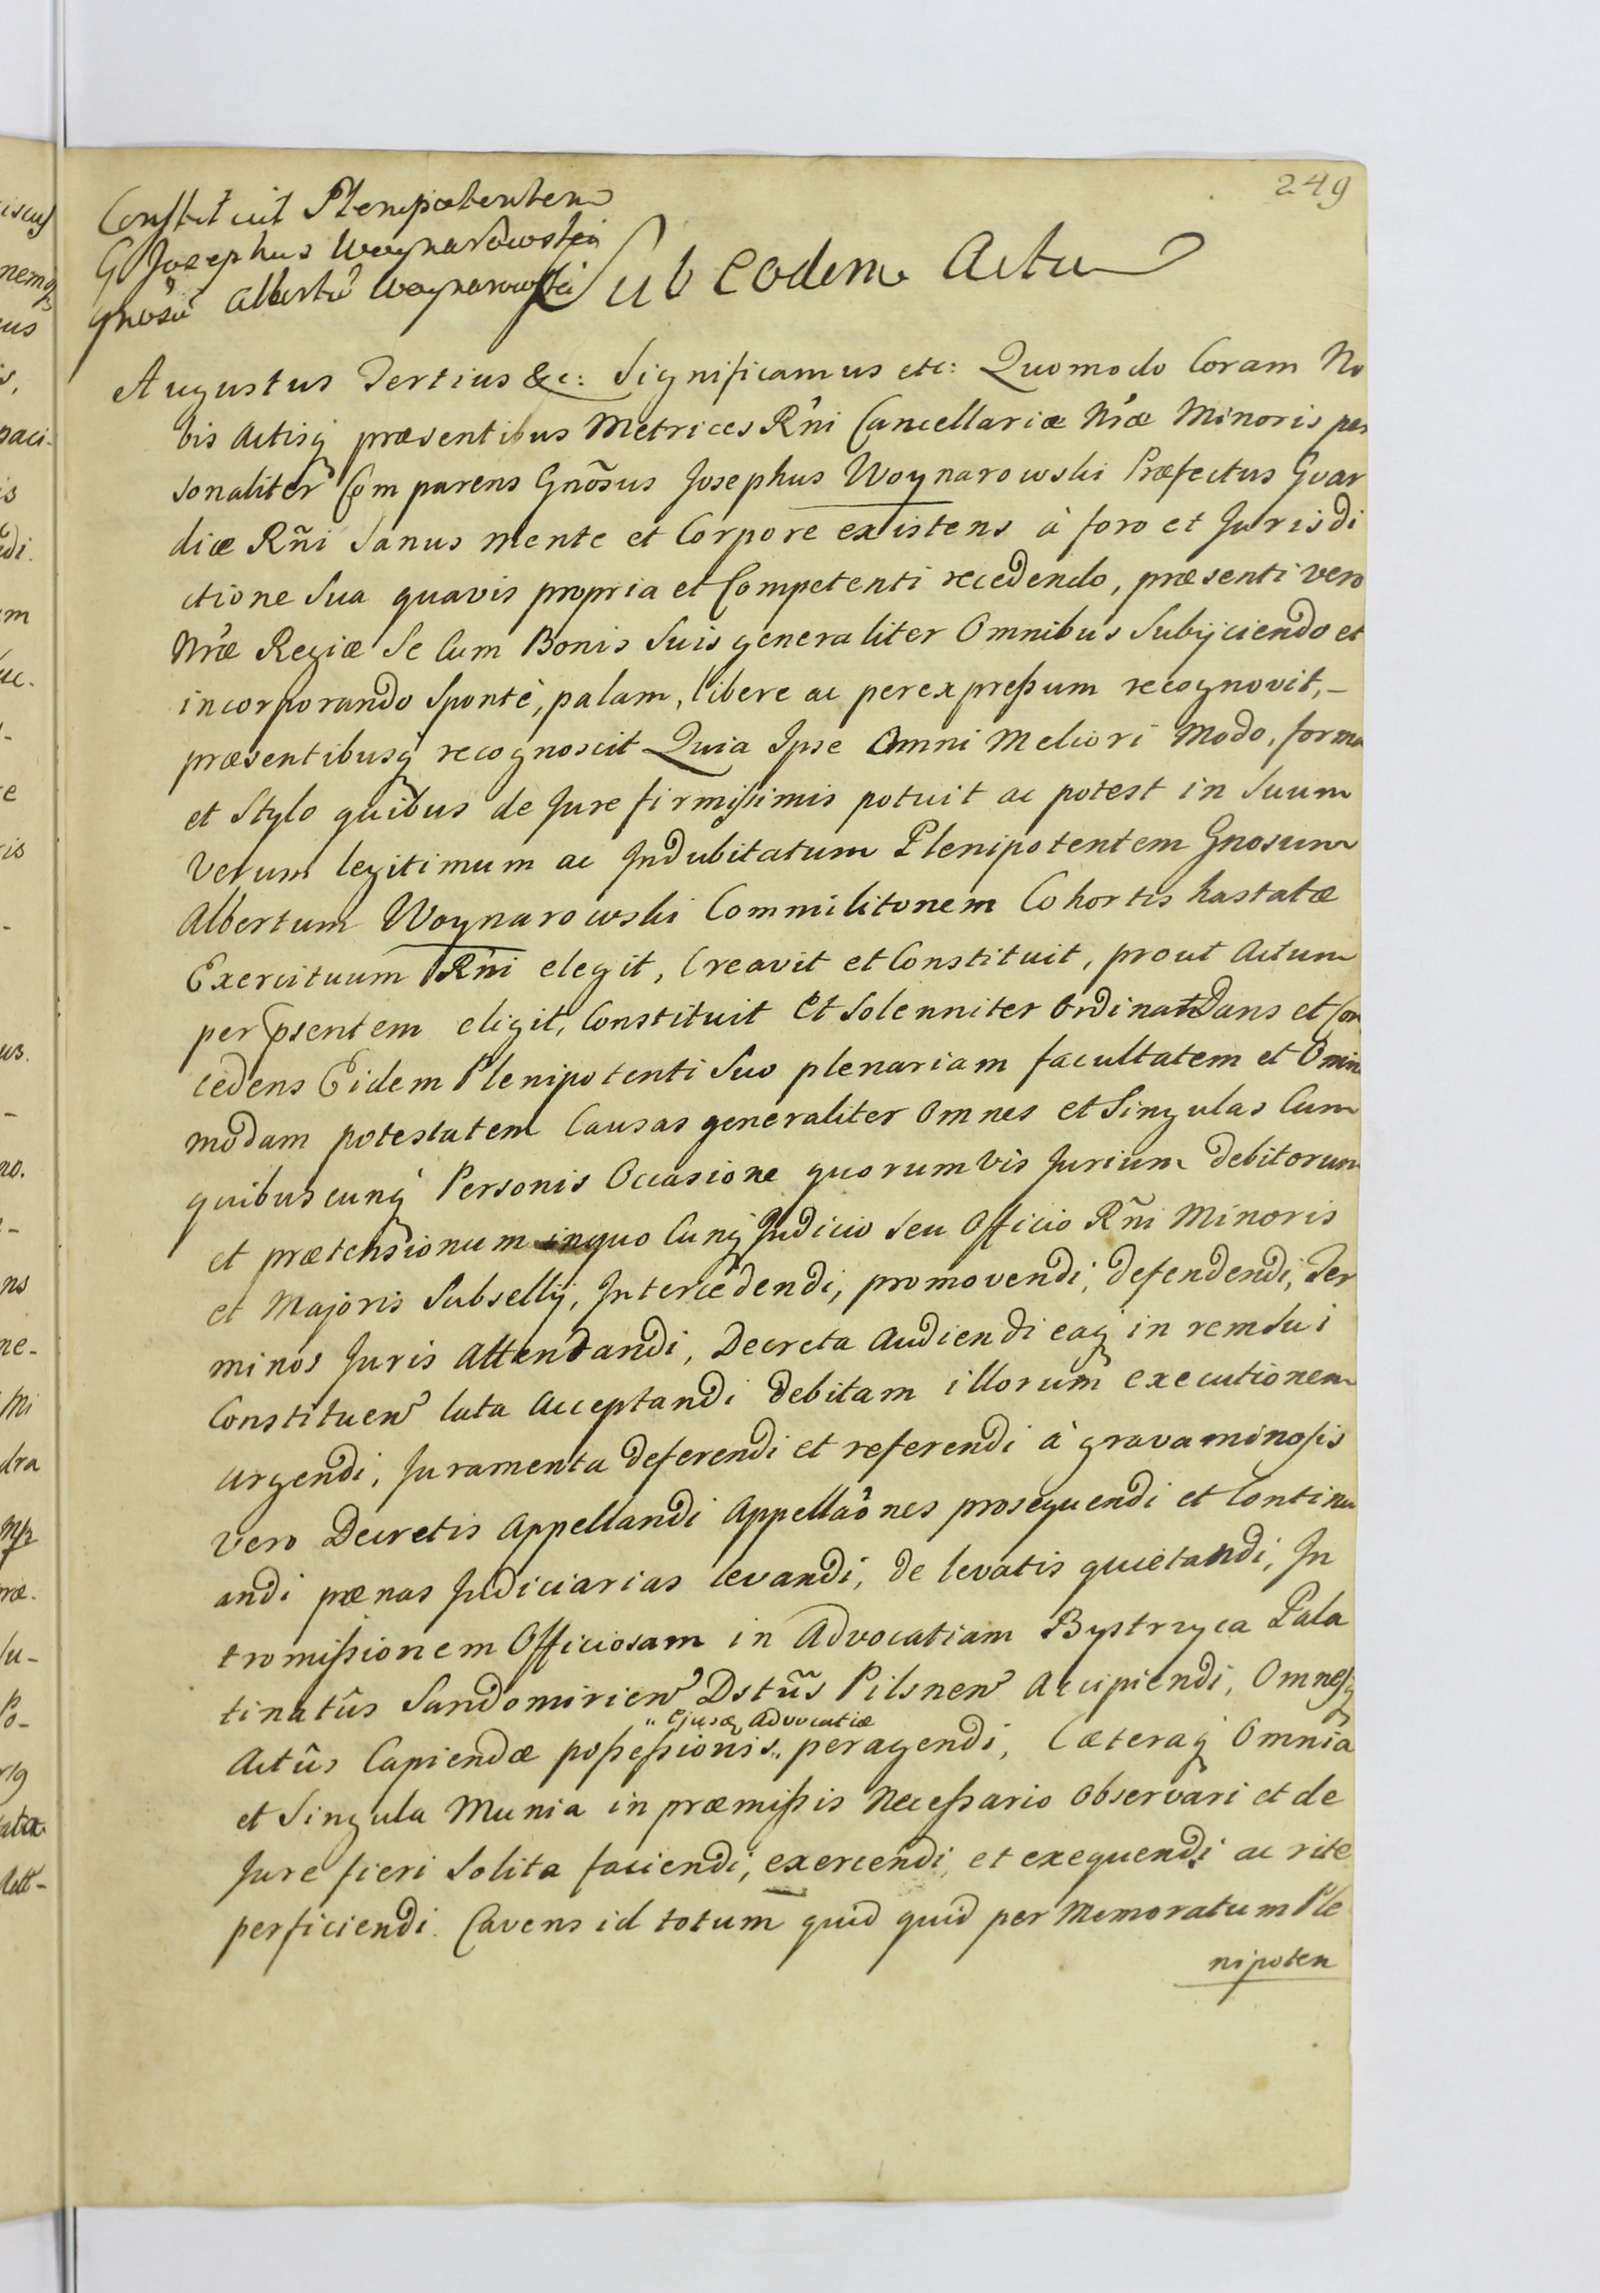 249
Constituit Plenipotentem
G Josephus Woynarowski
Gnosũ Albertũ Woynarowski
Sub eodem Actu
Augustus Tertius &c: Significamus etc: Quomodo Coram No
bis Actisq̃ præsentibus Metrices Rñi Cancellariæ Nræ Minoris per
sonaliter Comparens Gnõsus Josephus Woynarowski Præfectus Gvar
diæ Rñi Sanus mente et Corpore existens à foro et Jurisdi
ctione Sua quavis propria et Competenti recedendo, præsenti vero
Nræ Regiæ Se Cum Bonis Suis generaliter Omnibus Subijciendo et
incorporando Sponte, palam, libere ac per expreßum recognovit,-
præsentibusq̃ recognoscit Quia Ipse Omni Meliori Modo, forma
et Stylo quibus de Jure firmissimis potuit ac potest in Suum
Verum legitimum ac Indubitatum Plenipotentem Gnosum
Albertum Woynarowski Commilitonem Cohortis hastatæ
Exercituum Rñi elegit, Creavit et Constituit, prout Actum
per psentem eligit, Constituit et Solenniter Ordinat Dans et Con
cedens Eidem Plenipotenti Suo plenariam facultatem et Omni
modam potestatem Causas generaliter Omnes et Singulas Cum
quibuscunq̃ Personis Occasione quorumvis Jurium debitorum
et prætensionum inquo Cunq̃ Judicio Seu Officio Rñi Minoris
et Majoris Subsellij, Intercedendi, promovendi, defendendi, Ter
minos Juris Attentandi, Decreta Audiendi eaq̃ in rem Sui
Constituen̉ lata Acceptandi debitam illorum executionem
urgendi, Juramenta deferendi et referendi à gravaminosis
vero Decretis Appellandi Appellaõnes prosequendi et Continu
andi pænas Judiciarias levandi, de levatis quietandi, In
tromißionem Officiosam in Advocatiam Bystrzyca Pala
tinatûs Sandomirien̉ Dstũs Pilsnen̉ Accipiendi, Omnesq̃
„ ejusq̃ Advocatiæ
Actûs Capiendæ poßeßionis „ peragendi, Cæteraq̃ Omnia
et Singula Munia in præmißis Neceßario Observari et de
Jure fieri Solita faciendi, exercendi et exequendi ac rite
perficiendi. Cavens id totum quid quid per Memoratum Ple
nipoten